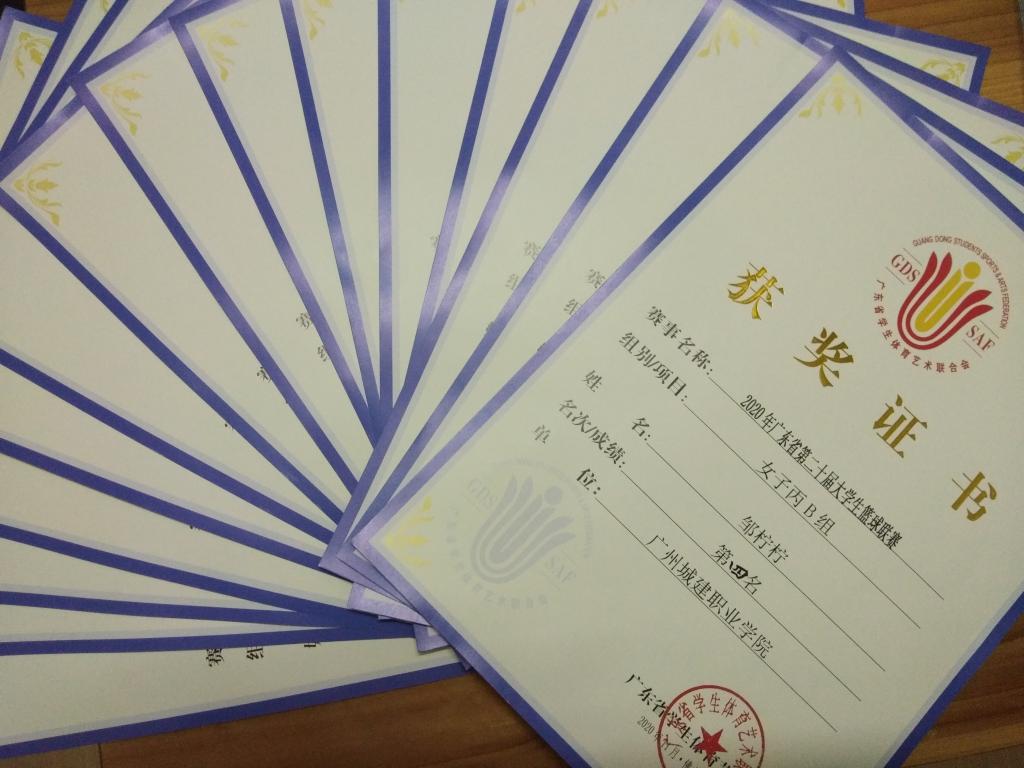 GUANG DONG STUDENTS SPORTS & ARTS FEDERATION
GDS
SAF
广东省学生体育艺术联合会
获奖证书
赛事名称：2020年广东省第二十届大学生篮球联赛
组别/项目：女子丙B组
姓名：邹柠柠
名次/成绩：第四名
单位：广州城建职业学院
GDS
SAF
广东省学生体育
2020年
学生体育艺术
赛
组
赛
组
赛
赛
组